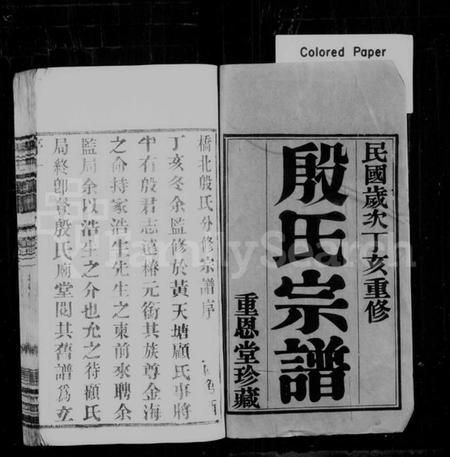 Colored Paper
民國歲次丁亥重修
殷氏宗譜
重恩堂珍藏
橋北殷氏分修宗譜序
丁亥冬余監修於黃天塘顧氏事將
牛有殷君志道椿元銜其族尊金海
之命持家浩生先生之柬前來聘余
監局余以浩生之介也允之待顧氏
局終卽餐殷氏廟堂閱其舊譜爲立
FamilySearch